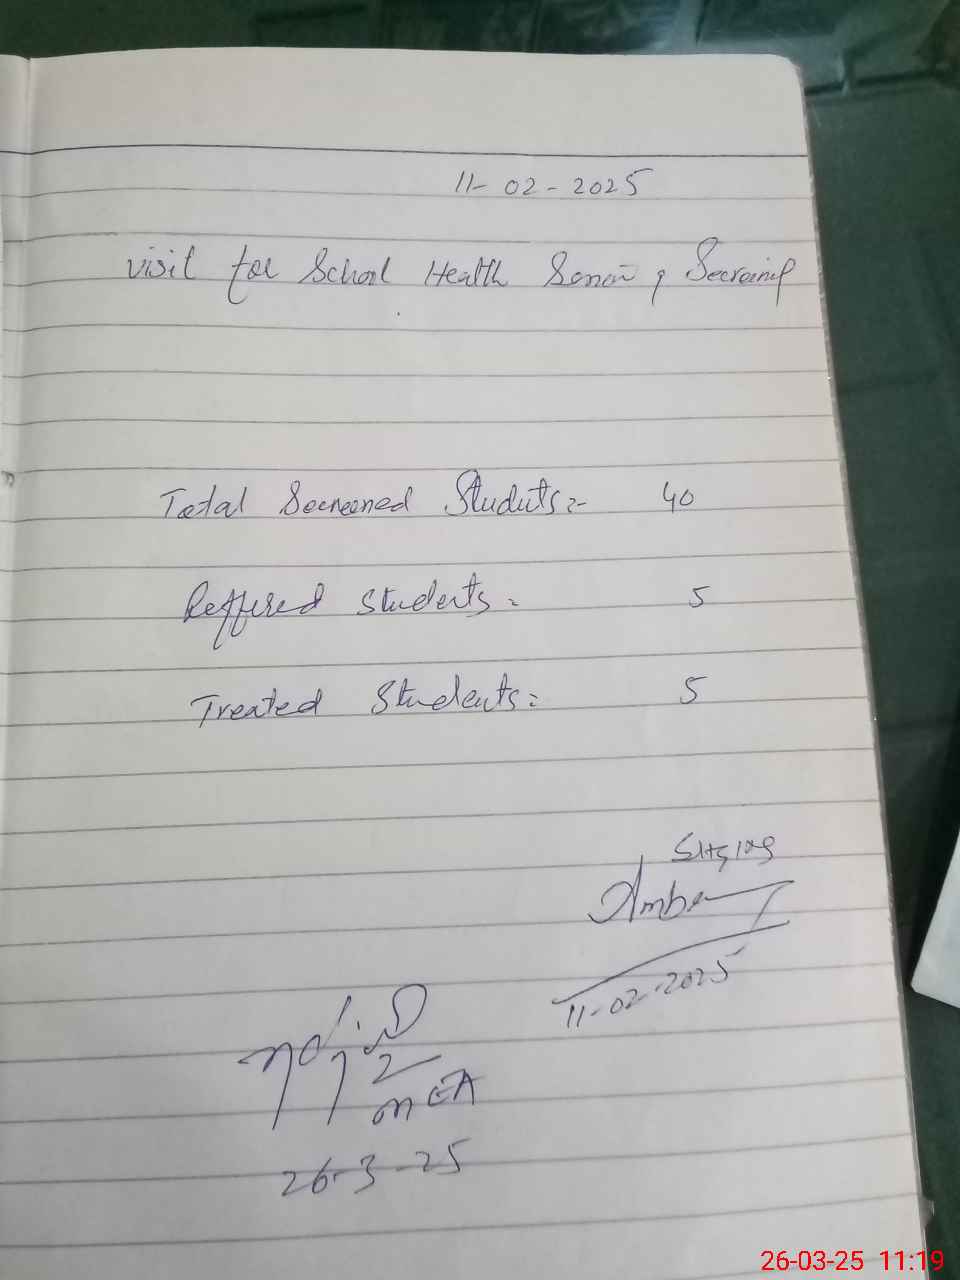 11-02-2025
visit for School Health & Secreening
Total Secreened Students:- 40
Reffered students = 5
Treated Students = 5
Amber
11-02-2025
MEA
26-3-25
26-03-25 11:19